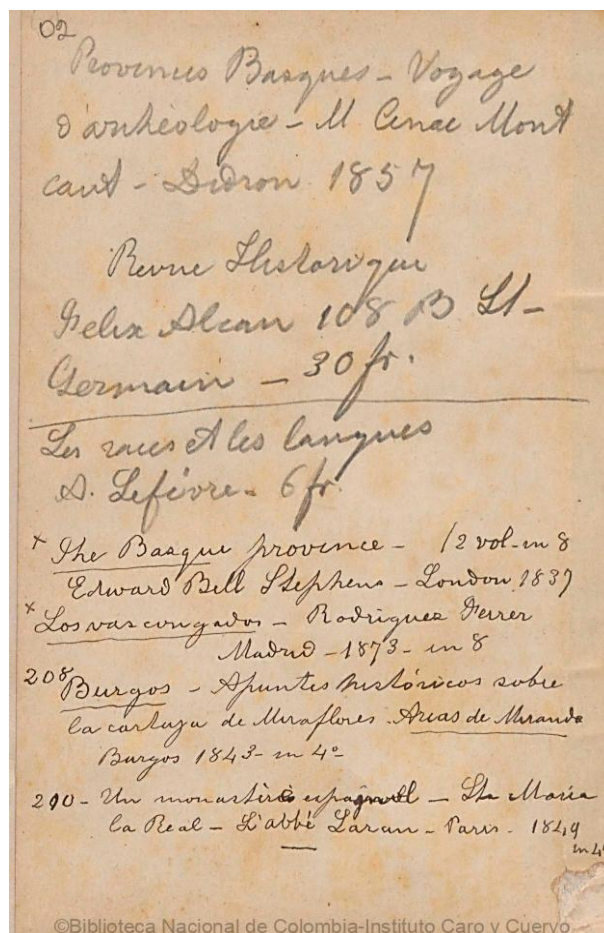 02
Provinces Basques - Voyage
d'archéologie - M Cenac Mont
caut - Didron 1857
Revue Historique
Felix Alcan 108 B St -
Germain - 30 fr.
Les races et les langues
A. Lefévre - 6 fr.
x The Basque province - /2 vol - in 8
Edward Bell Stephens - London 1837
x Los vascongados - Rodriguez Ferrer
Madrid - 1873 - in 8
208 Burgos - Apuntes históricos sobre
la cartuja de Miraflores. Arias de Miranda
Burgos 1843 - in 4º -
210 - Un monastère espagnol - Sta Maria
la Real - L'abbé Laran - Paris - 1849
in 4º
©Biblioteca Nacional de Colombia-Instituto Caro y Cuervo